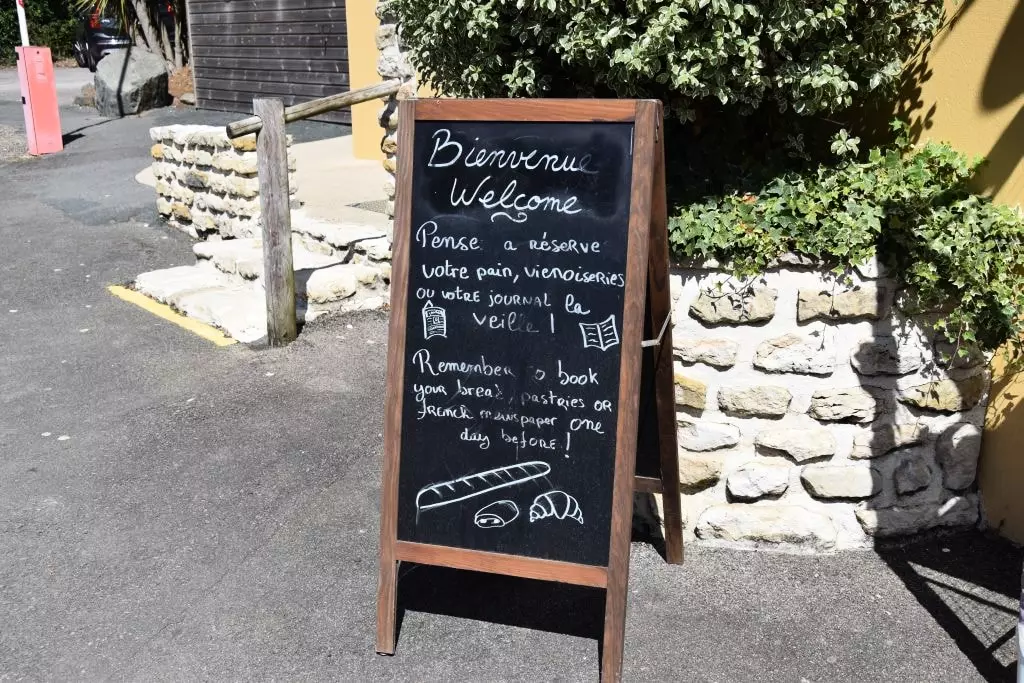 Bienvenue
Welcome
Pense a réserve
votre pain, vienoiseries
ou votre journal la
veille !
Remember o book
your bread, pastries or
french newspaper one
day before !